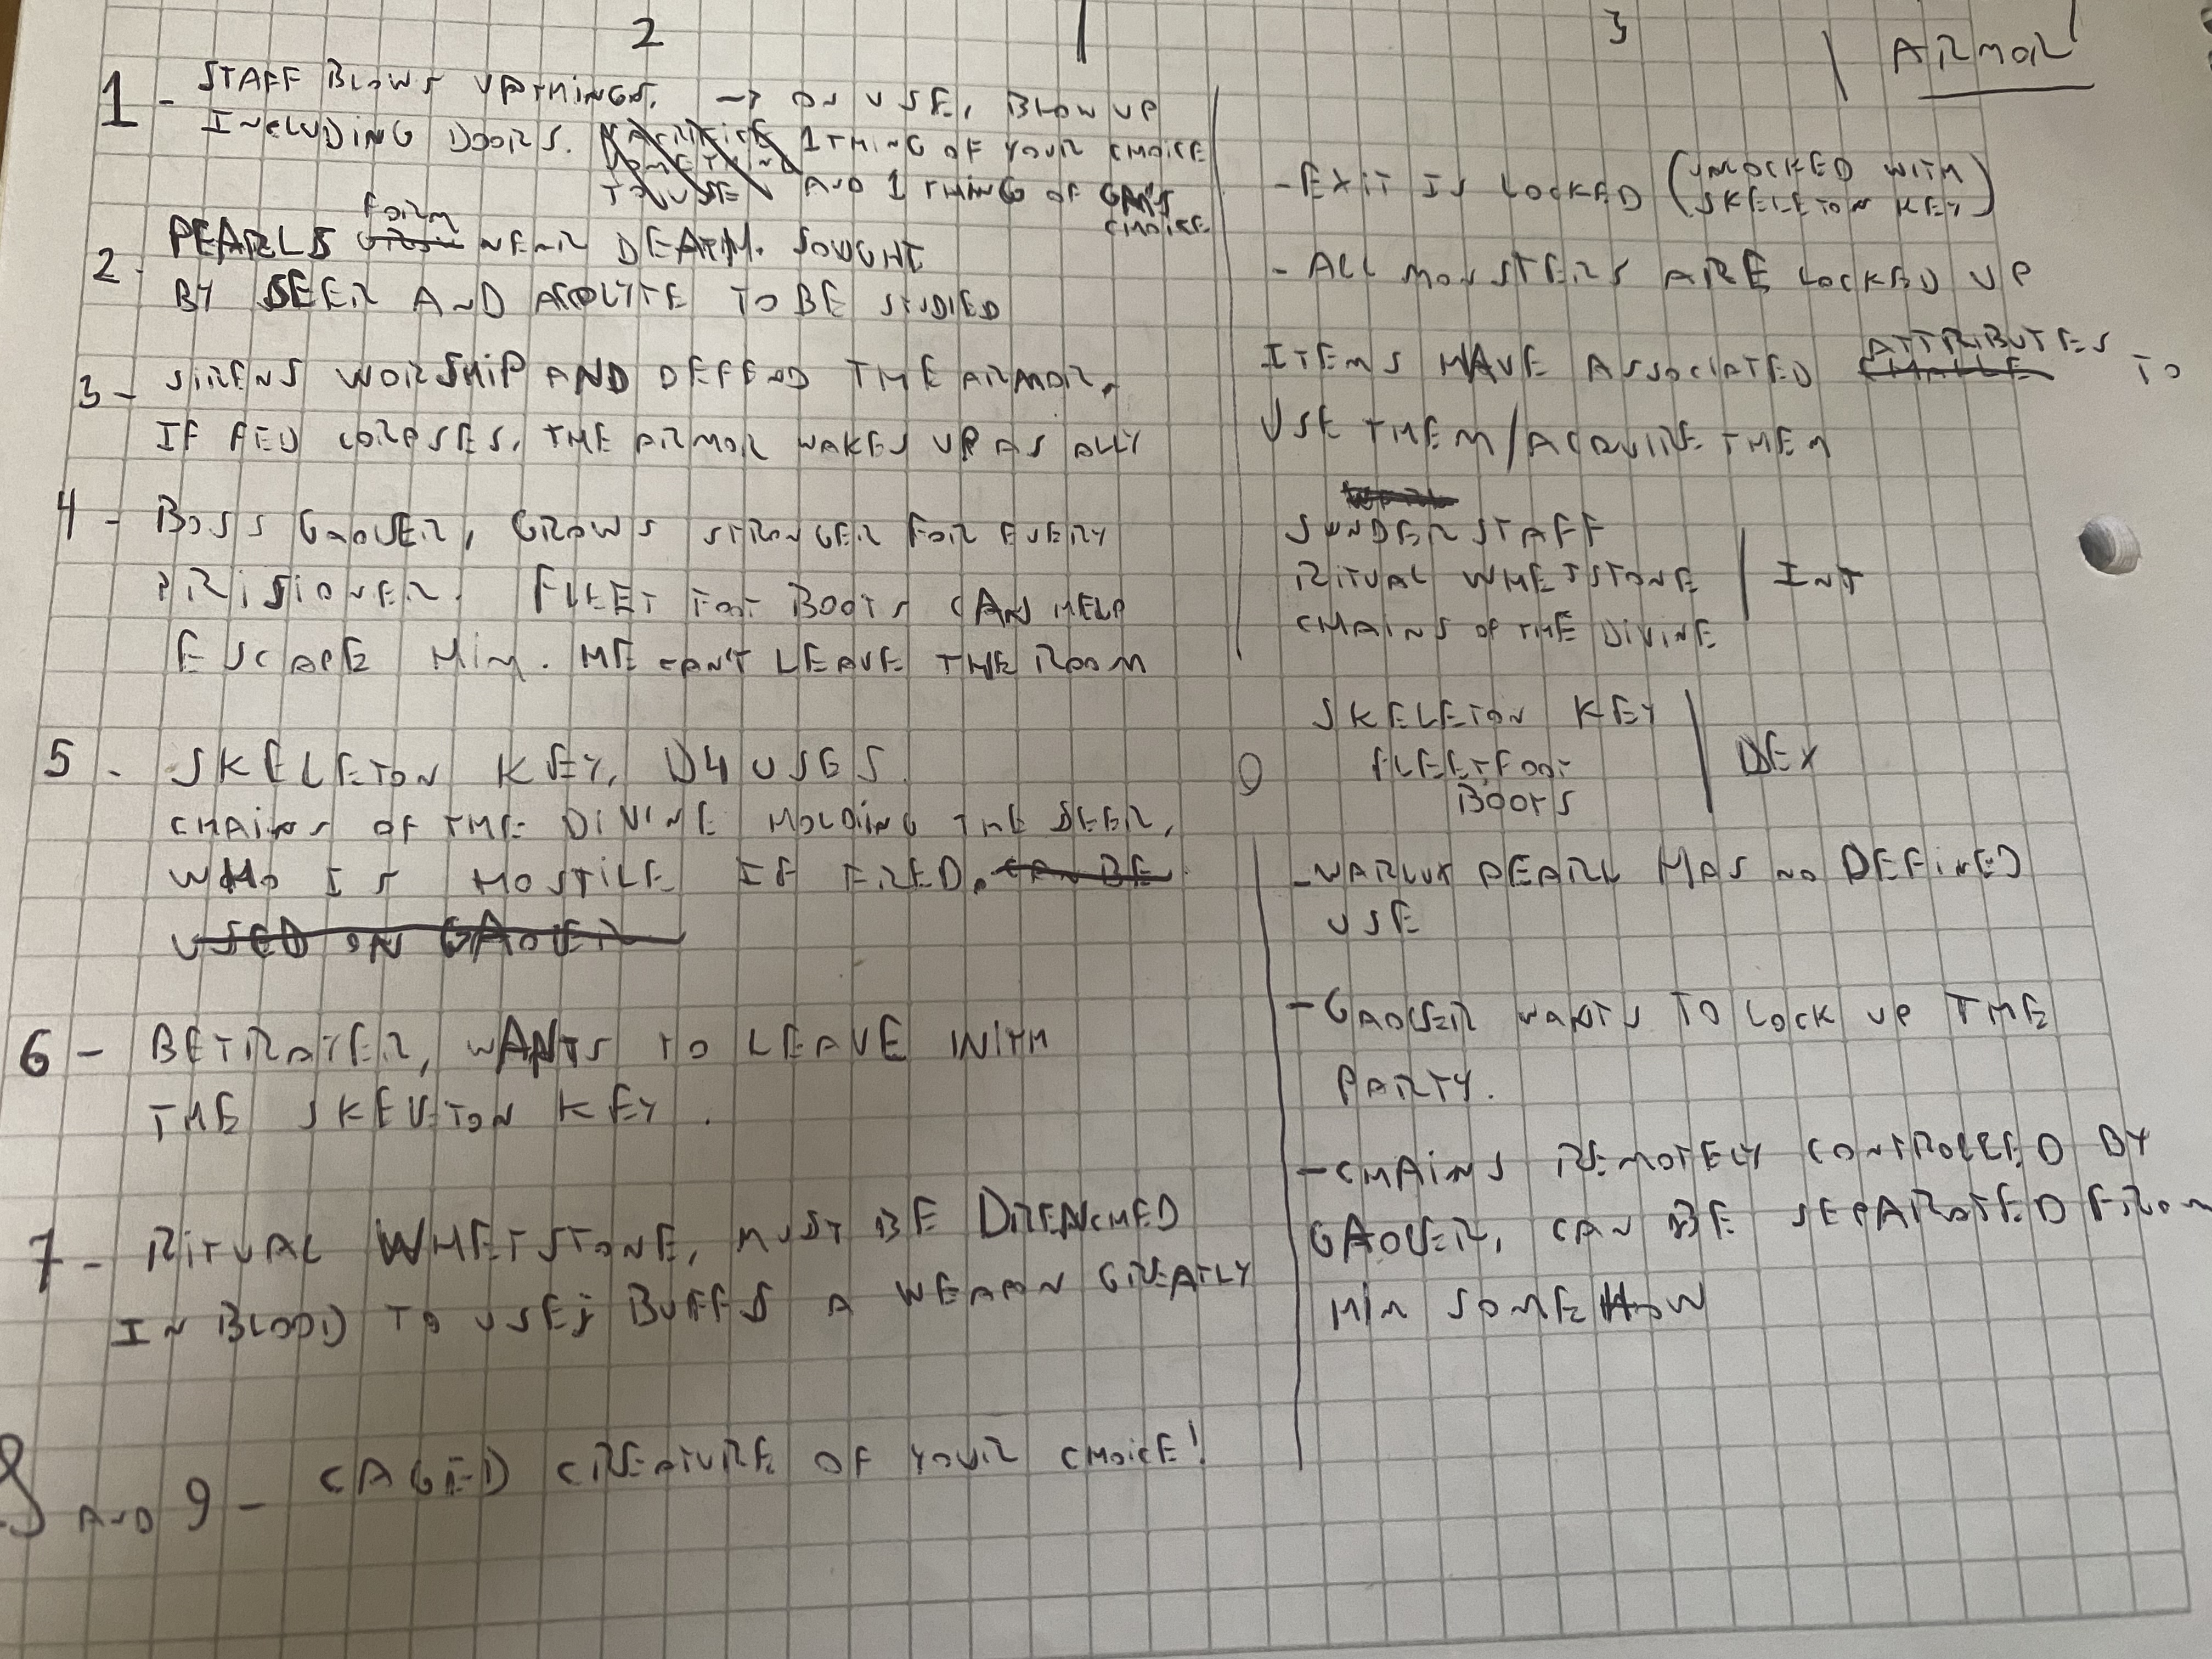 2
1 - STAFF BLOWS UP THINGS, → ON USE, BLOW UP
INCLUDING DOORS. SACRIFICE SOMETHING TO USE 1 THING OF YOUR CHOICE
AND 1 THING OF GM'S CHOICE
2 - PEARLS FORM NEAR DEATH. SOUGHT
BY SEER AND ACOLYTE TO BE STUDIED
3 - SIRENS WORSHIP AND DEFEND THE ARMOR.
IF FED CORPSES, THE ARMOR WAKES UP AS ALLY
4 - BOSS GAOLER, GROWS STRONGER FOR EVERY
PRISIONER. FLEET FOOT BOOTS CAN HELP
ESCAPE HIM. HE CAN'T LEAVE THE ROOM
5 - SKELETON KEY, D4 USES.
CHAINS OF THE DIVINE HOLDING THE SEER,
WHO IS HOSTILE IF FREED. CAN BE
USED ON GAOLER
6 - BETRAYER, WANTS TO LEAVE WITH
THE SKELETON KEY.
7 - RITUAL WHETSTONE, MUST BE DRENCHED
IN BLOOD TO USE; BUFFS A WEAPON GREATLY
8 AND 9 - CAGED CREATURE OF YOUR CHOICE!
3
ARMOR
- EXIT IS LOCKED (UNLOCKED WITH
SKELETON KEY)
- ALL MONSTERS ARE LOCKED UP
ITEMS HAVE ASSOCIATED ATTRIBUTES TO
USE THEM/ACQUIRE THEM
SUNDER STAFF
RITUAL WHETSTONE | INT
CHAINS OF THE DIVINE
SKELETON KEY
FLEETFOOT | DEX
BOOTS
- PEARL HAS NO DEFINED
USE
- GAOLER WANTS TO LOCK UP THE
PARTY.
- CHAINS REMOTELY CONTROLLED BY
GAOLER, CAN BE SEPARATED FROM
HIM SOMEHOW